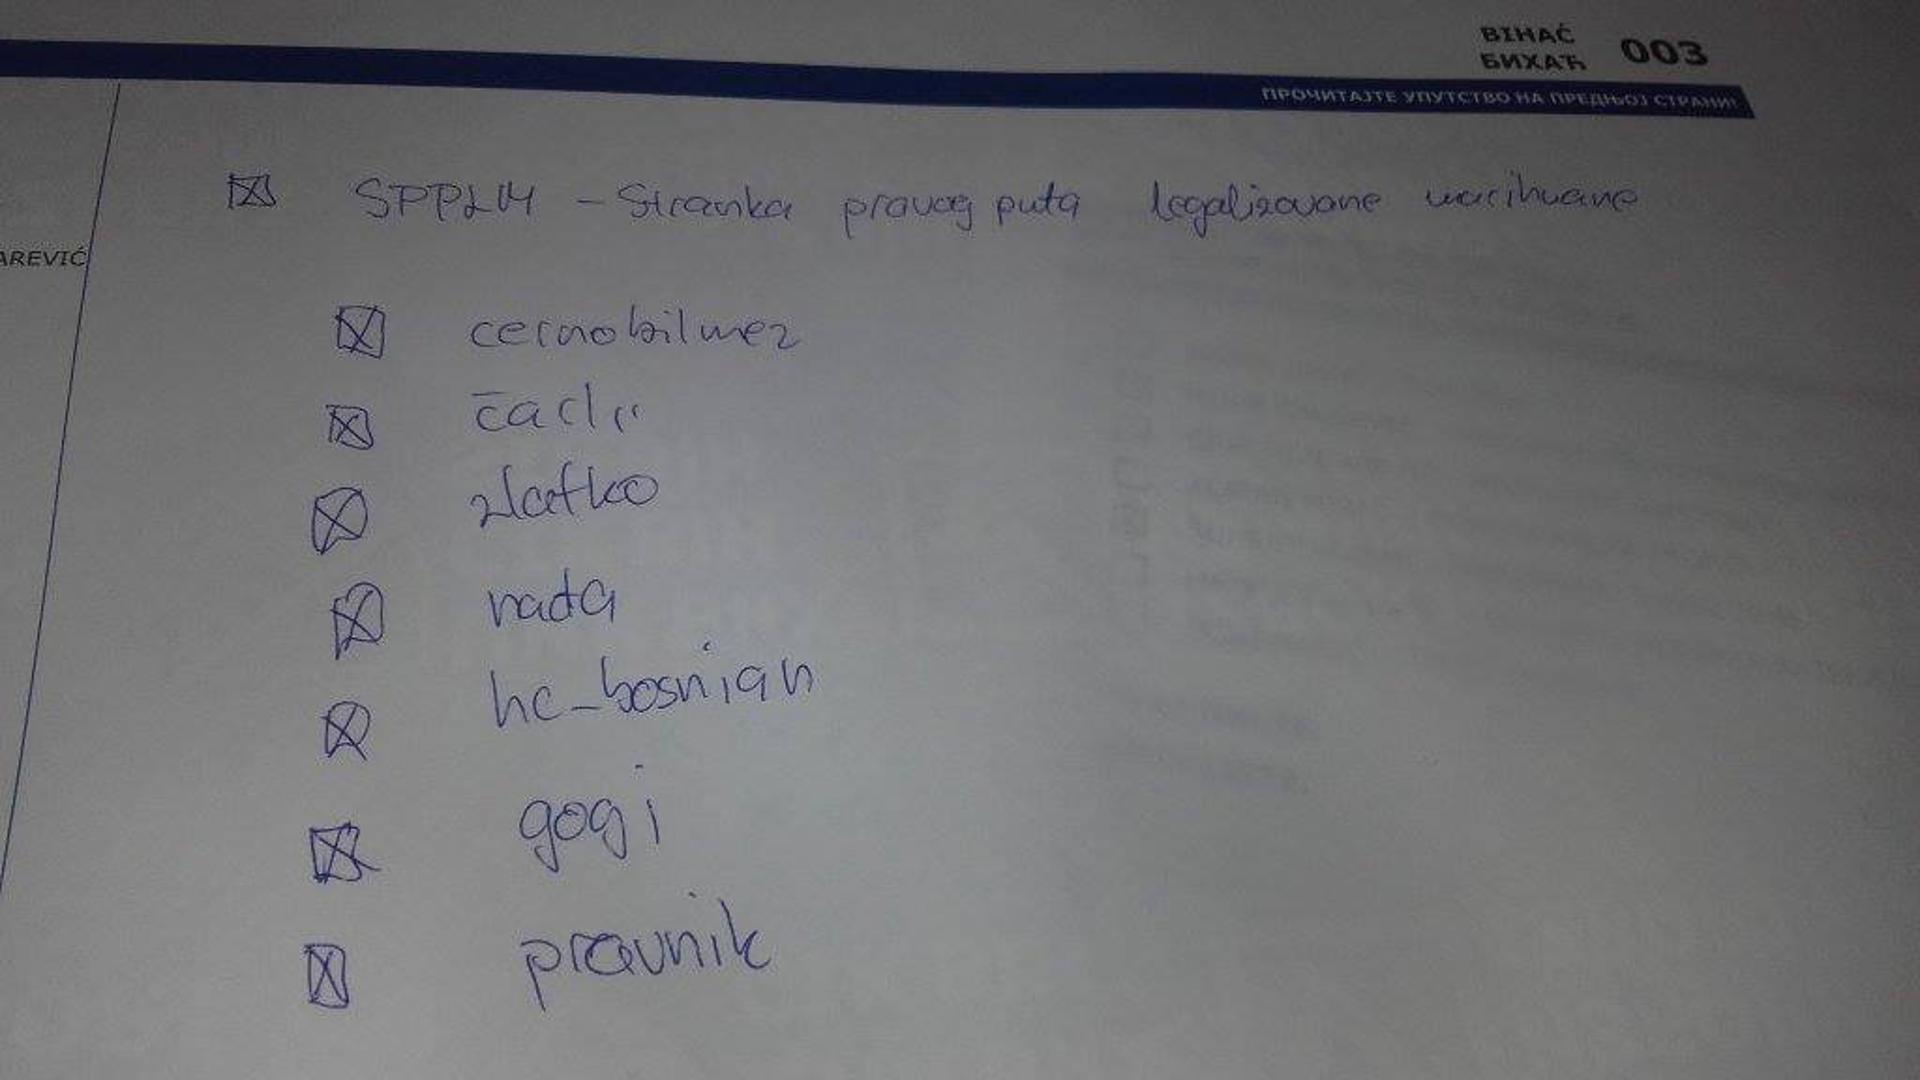 BIHAĆ
БИХАЋ 003
ПРОЧИТАЈТЕ УПУТСТВО НА ПРЕДЊОЈ СТРАНИ!
SPPLM - Stranka pravog puta legalizovane marihuane
AREVIĆ
cernobilmez
zlatko
rada
hc_bosnian
gogi
pravnik